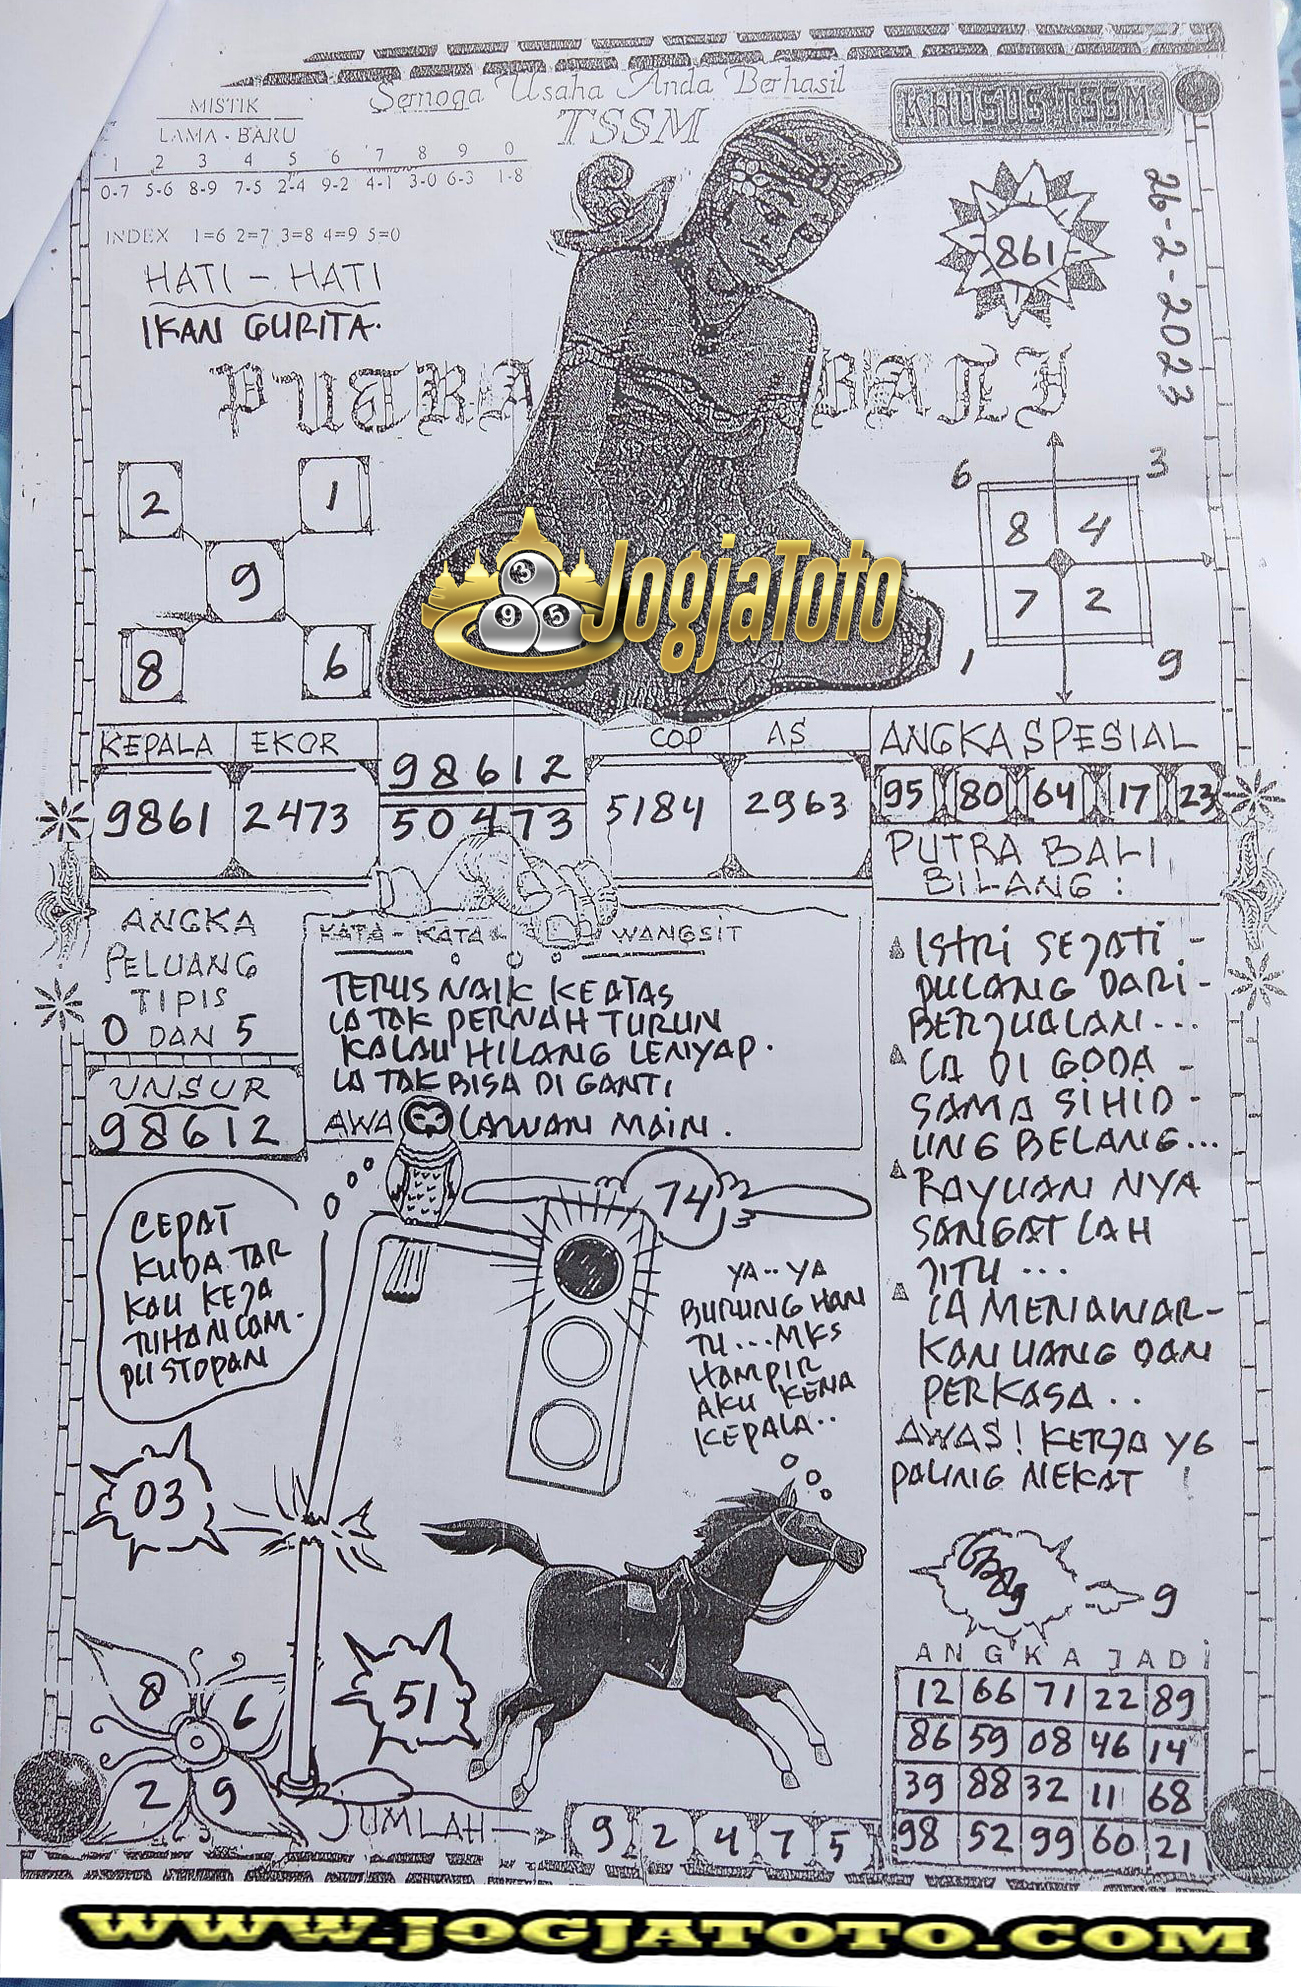 Semoga Usaha Anda Berhasil
TSSM
KHUSUS TSSM
MISTIK
LAMA - BARU
1 2 3 4 5 6 7 8 9 0
0-7 5-6 8-9 7-5 2-4 9-2 4-1 3-0 6-3 1-8
INDEX 1=6 2=7 3=8 4=9 5=0
HATI - HATI
IKAN GURITA.
861
26-2-2023
PUTRA BALI
2 1
9
8 6
6 3
8 4
7 2
1 9
JogjaToto
3
9 5
KEPALA EKOR COP AS
9861 2473
98612
50473
5184 2963
ANGKA SPESIAL
95 80 64 17 23
PUTRA BALI
BILANG :
ISTRI SEJATI -
PULANG DARI -
BERJUALAN...
IA DI GODA -
SAMA SIHID -
UNG BELANG...
RAYUAN NYA
SANGAT LAH
JITU ...
IA MENAWAR-
KAN UANG DAN
PERKASA ..
AWAS! KERJA YG
PALING NEKAT !
ANGKA
PELUANG
TIPIS
0 DAN 5
UNSUR
98612
KATA - KATA WANGSIT
TERUS NAIK KEATAS
IA TAK PERNAH TURUN
KALAU HILANG LENYAP.
IA TAK BISA DI GANTI
AWA LAWAN MAIN.
CEPAT
KUDA TAR
KAU KEJA
TUHAN LAM-
PU STOPAN
74
YA..YA
BURUNG HAN
TU...MKS
HAMPIR
AKU KENA
KEPALA..
03
51
8 6
2 9
JUMLAH
9 2 4 7 5
9
ANGKA JADI
12 66 71 22 89
86 59 08 46 14
39 88 32 11 68
98 52 99 60 21
WWW.JOGJATOTO.COM